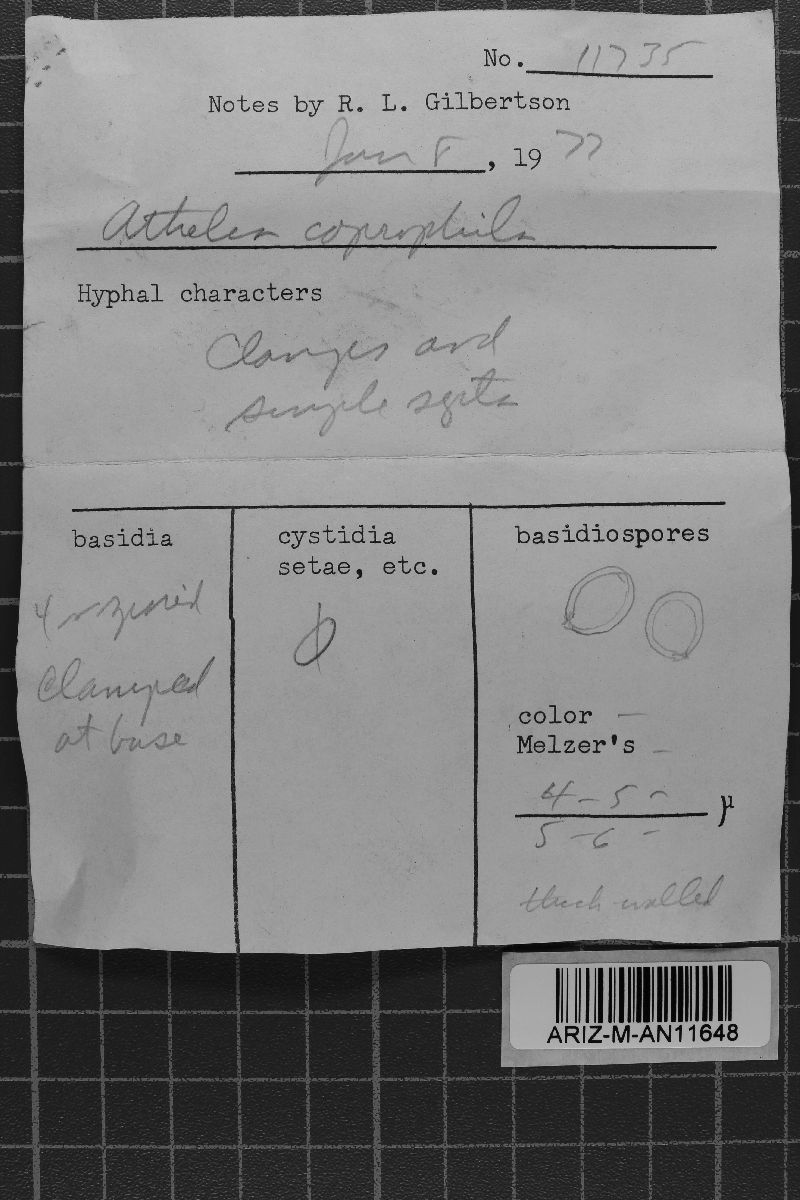 No. 11735
Notes by R. L. Gilbertson
Jan 8, 1977
Athelia coprophila
Hyphal characters
Clamps and
simple septa
basidia
4 spored
clamped
at base
cystidia
setae, etc.
basidiospores
color -
Melzer's -
4 - 5 -
5 - 6 -
μ
thick-walled
ARIZ-M-AN11648